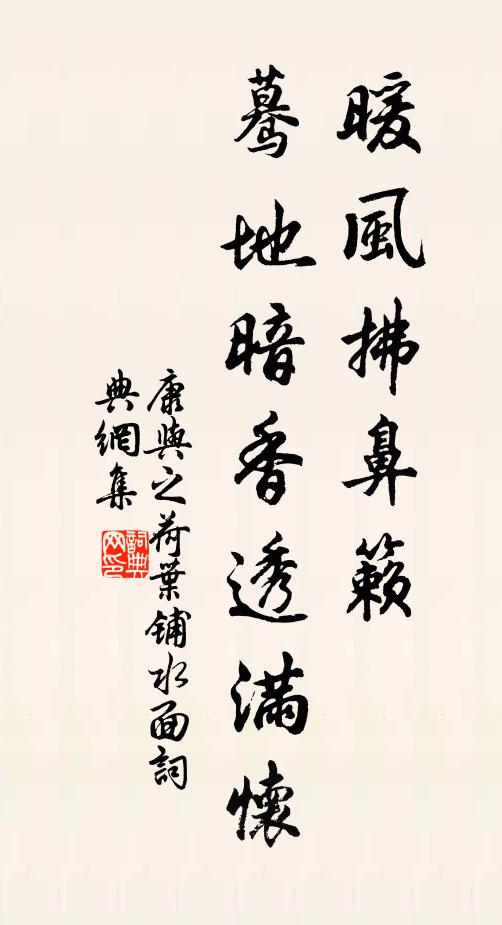 暖風拂鼻籟
驀地暗香透滿懷
康與之荷葉鋪水面詞
典網集
詞典网印